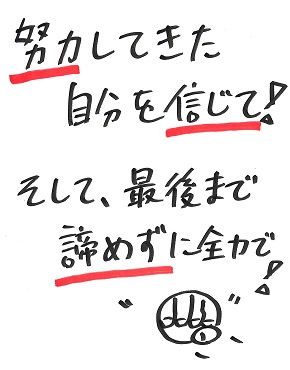 努力してきた
自分を信じて!
そして、最後まで
諦めずに全力で!